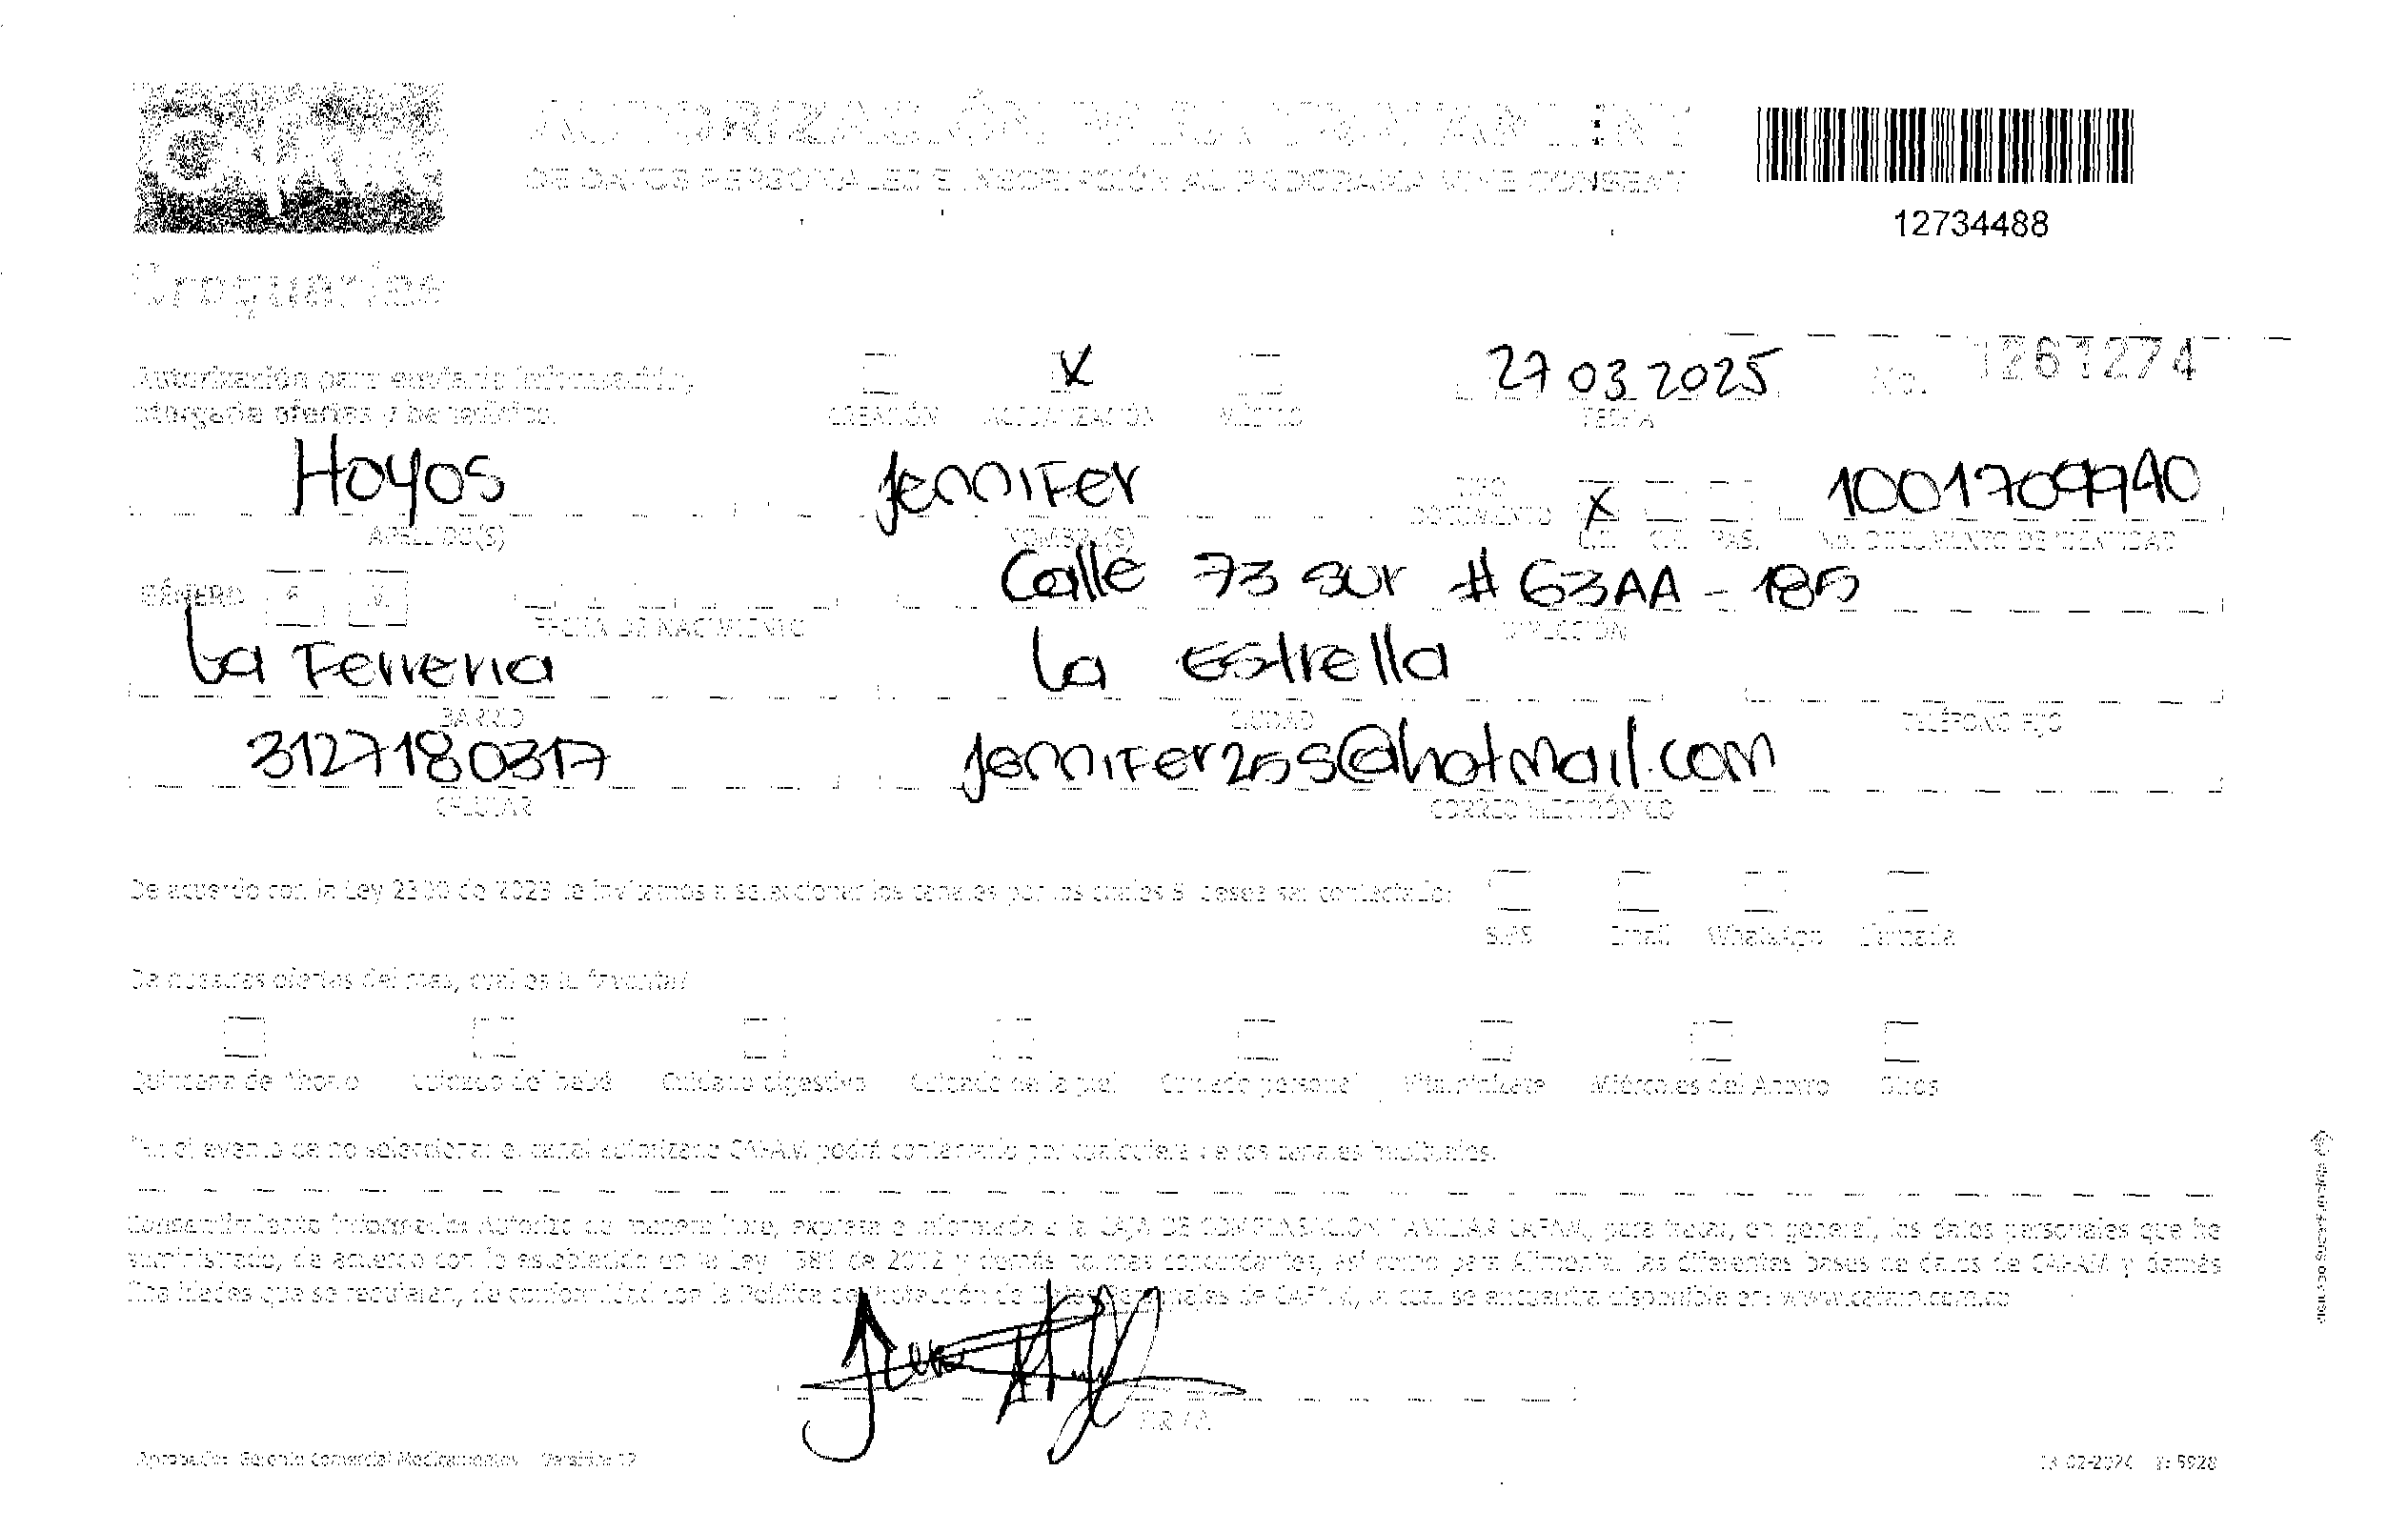 Cafam
AUTORIZACIÓN
DE DATOS PERSONALES E INSCRIPCIÓN AL PROGRAMA VIVE CONSENT
12734488
Droguerías
Autorización para enviarle información,
otorgarle ofertas y beneficios.
X
CREACIÓN ACTUALIZACIÓN MÉDICO
27 03 2025
FECHA
No. 1261274
Hoyos Jennifer X 1001709940
APELLIDO(S) NOMBRE(S) TIPO DOCUMENTO C.C. C.E. PAS. No. DOCUMENTO DE IDENTIDAD
GÉNERO F M Calle 73 sur # 63AA - 185
FECHA DE NACIMIENTO DIRECCIÓN
La Ferreria La Estrella
BARRIO CIUDAD TELÉFONO FIJO
3127180317 Jennifer255@hotmail.com
CELULAR CORREO ELECTRÓNICO
De acuerdo con la Ley 2300 de 2023 te invitamos a seleccionar los canales por los cuales deseas ser contactado:
SMS Email WhatsApp Llamada
De nuestras ofertas del mes, cuál es tu favorita?
Quincena de Ahorro Cuidado del bebé Cuidado digestivo Cuidado de la piel Cuidado personal Miércoles del Ahorro Otros
*En el evento de no seleccionar el canal autorizado CAFAM podrá contactarlo por cualquiera de los canales
Consentimiento Informado: Autorizo de manera libre, expresa e informada a la CAJA DE COMPENSACIÓN FAMILIAR CAFAM, para tratar, en general, los datos personales que he
suministrado, de acuerdo con lo establecido en la Ley 1581 de 2012 y demás normas concordantes, así como para Alimentar las diferentes bases de datos de CAFAM y demás
finalidades que se requieran, de conformidad con la Política de Protección de Datos Personales de CAFAM, la cual se encuentra disponible en: www.cafam.com.co
FIRMA
Aprobación: Gerencia Comercial Medicamentos Versión: 12
13-02-2024